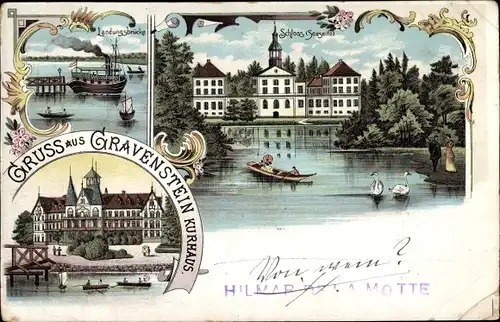 Landungsbrücke
Schloss (Seeseite)
GRUSS AUS GRAVENSTEIN
KURHAUS.
Von wem?
HILMAR LA MOTTE